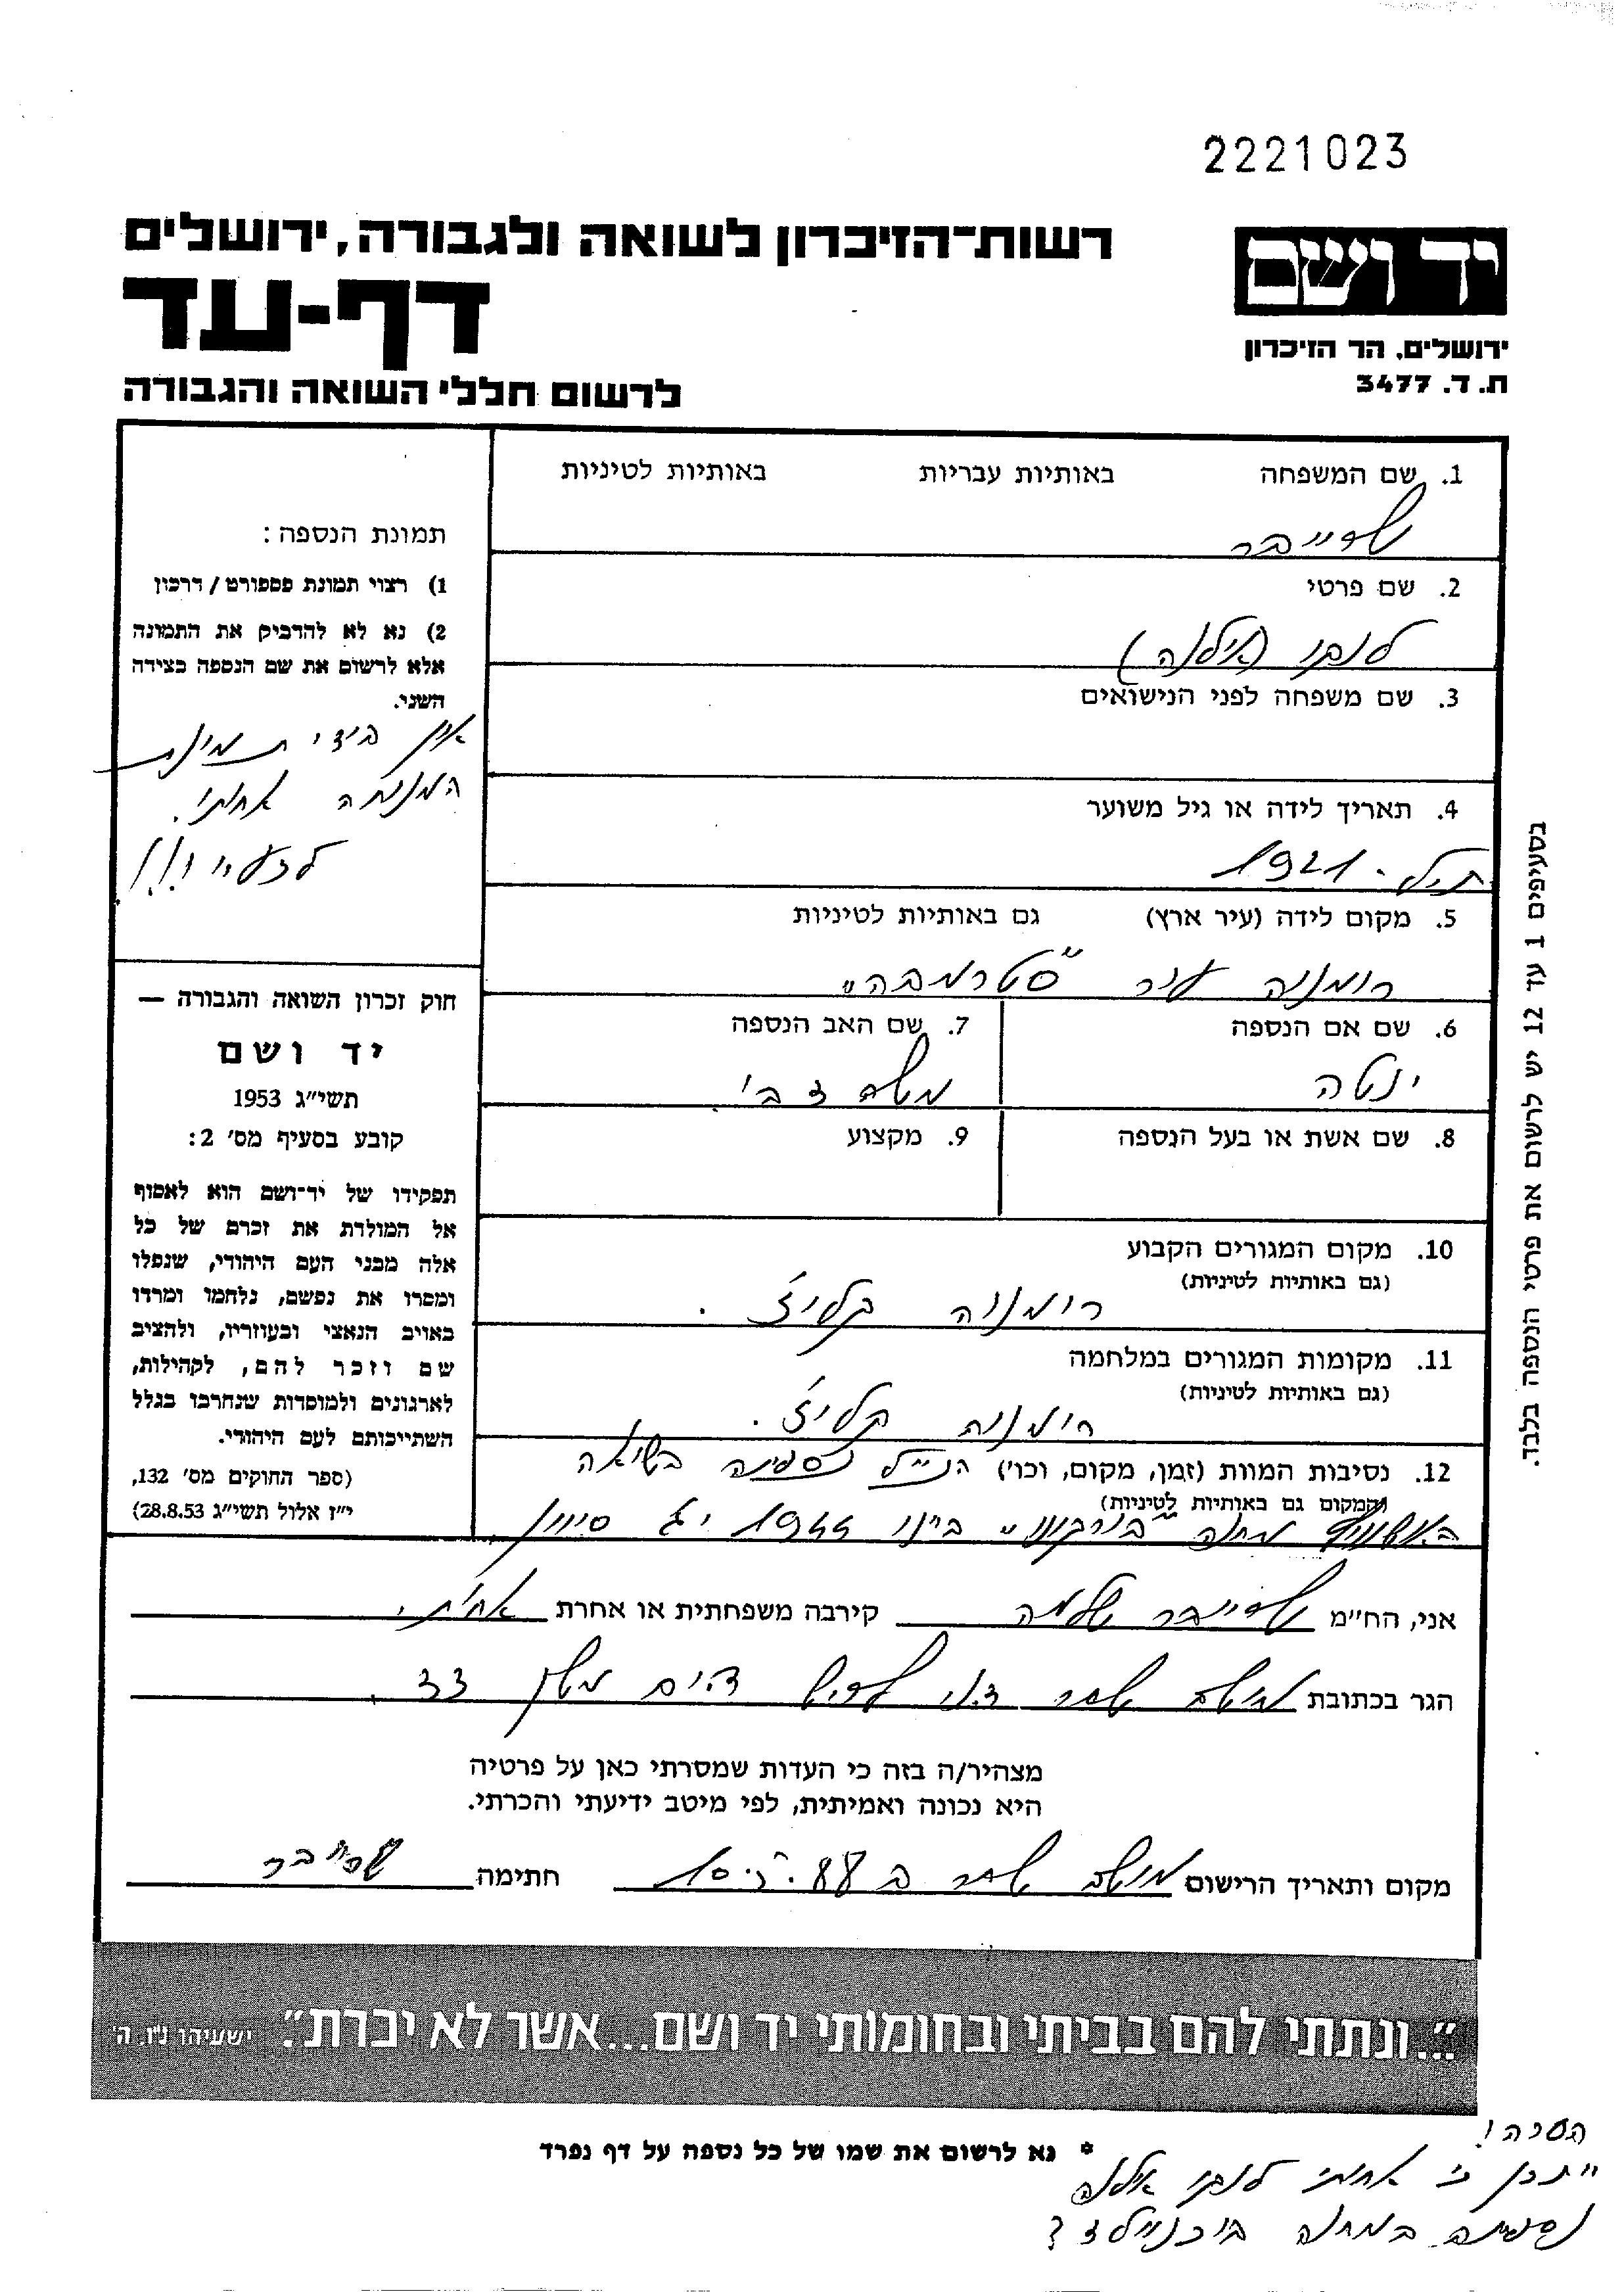 2221023
רשות־הזיכרון לשואה ולגבורה, ירושלים
דף-עד
לרשום חללי השואה והגבורה
יד ושם
ירושלים, הר הזיכרון
ת. ד. 3477
1. שם המשפחה באותיות עבריות באותיות לטיניות
שרייבר
2. שם פרטי
(אילנה)
3. שם משפחה לפני הנישואים
4. תאריך לידה או גיל משוער
1921
5. מקום לידה (עיר ארץ) גם באותיות לטיניות
רומניה עיר "סטרמבה"
6. שם אם הנספה
ינטה
7. שם האב הנספה
משה צבי
8. שם אשת או בעל הנספה
9. מקצוע
10. מקום המגורים הקבוע
(גם באותיות לטיניות)
רומניה קלוז'.
11. מקומות המגורים במלחמה
(גם באותיות לטיניות)
רומניה קלוז'.
12. נסיבות המוות (זמן, מקום, וכו') הנ"ל נספתה בשואה
(המקום גם באותיות לטיניות)
מחנה ביוני 1944 סיוון
תמונת הנספה:
1) רצוי תמונת פספורט/דרכון
2) נא לא להדביק את התמונה
אלא לרשום את שם הנספה בצידה
השני.
אין בידי תמונת
המנוחה אחותי.
לצערי!!!
חוק זכרון השואה והגבורה —
יד ושם
תשי"ג 1953
קובע בסעיף מס' 2:
תפקידו של יד־ושם הוא לאסוף
אל המולדת את זכרם של כל
אלה מבני העם היהודי, שנפלו
ומסרו את נפשם, נלחמו ומרדו
באויב הנאצי ובעוזריו, ולהציב
שם וזכר להם, לקהילות,
לארגונים ולמוסדות שנחרבו בגלל
השתייכותם לעם היהודי.
(ספר החוקים מס' 132,
י"ז אלול תשי"ג 28.8.53)
בסעיפים 1 עד 12 יש לרשום את פרטי הנספה בלבד.
אני, הח"מ שרייבר שלמה קירבה משפחתית או אחרת
הגר בכתובת מושב משק 33.
מצהיר/ה בזה כי העדות שמסרתי כאן על פרטיה
היא נכונה ואמיתית, לפי מיטב ידיעתי והכרתי.
מקום ותאריך הרישום מושב חתימה שרייבר
"...ונתתי להם בביתי ובחומותי יד ושם...אשר לא יכרת". ישעיהו נ"ו, ה'
* נא לרשום את שמו של כל נספה על דף נפרד
הערה!
יתכן כי אחותי אילנה
נספתה במחנה בוכנולד?